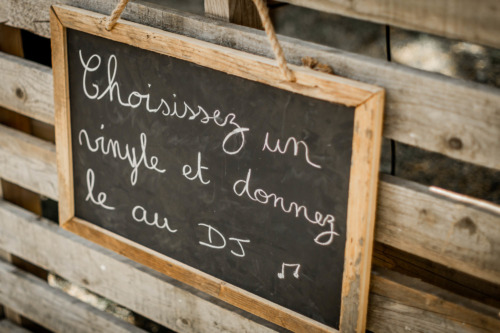 Choisissez un
vinyle et donnez
le au DJ ♫